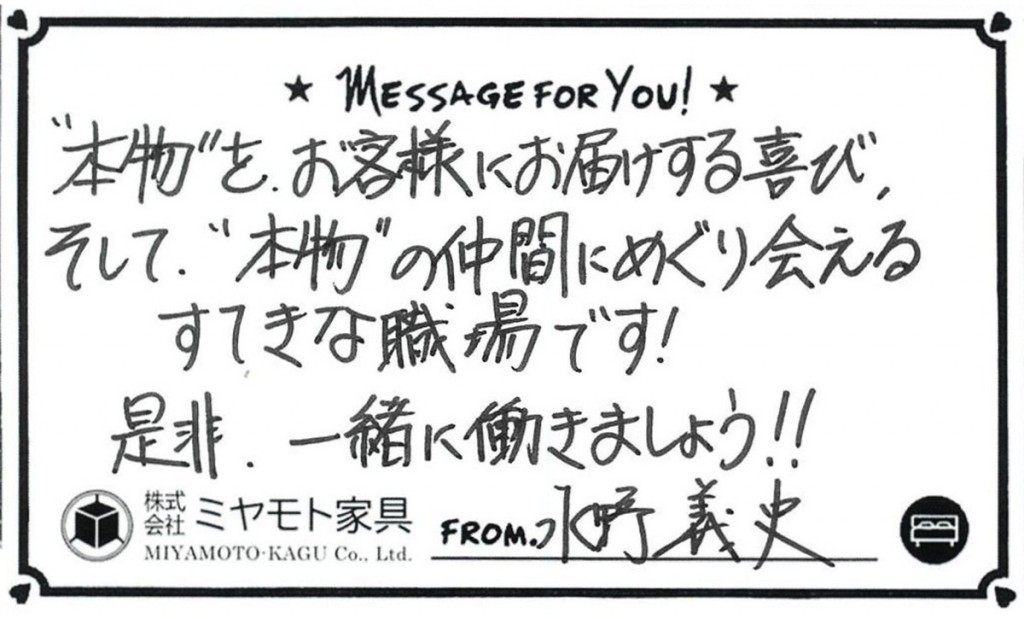 ★ MESSAGE FOR YOU! ★
"本物"を、お客様にお届けする喜び、
そして、"本物"の仲間にめぐり会える
すてきな職場です!
是非、一緒に働きましょう!!
株式会社 ミヤモト家具
MIYAMOTO-KAGU Co., Ltd.
FROM. 水野義史